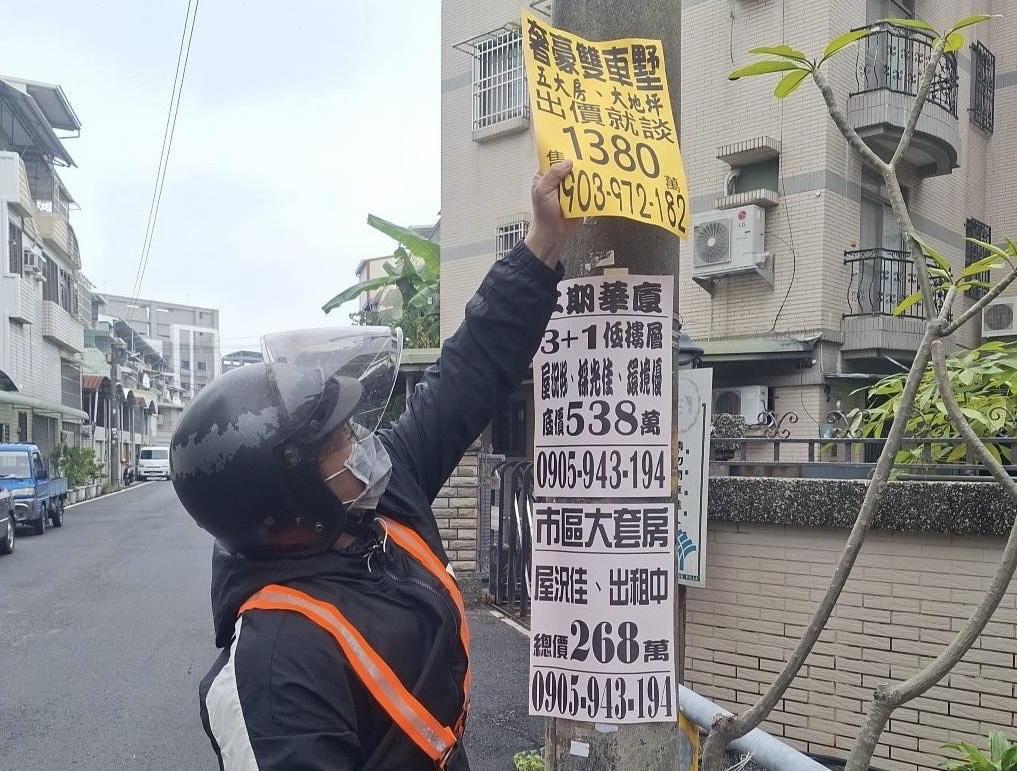 奢豪雙車墅
五大房、大地坪
出價就談
售1380萬
903-972-182
期華廈
3+1低樓層
屋況優、採光佳、環境優
底價538萬
0905-943-194
市區大套房
屋況佳、出租中
總價268萬
0905-943-194
LG